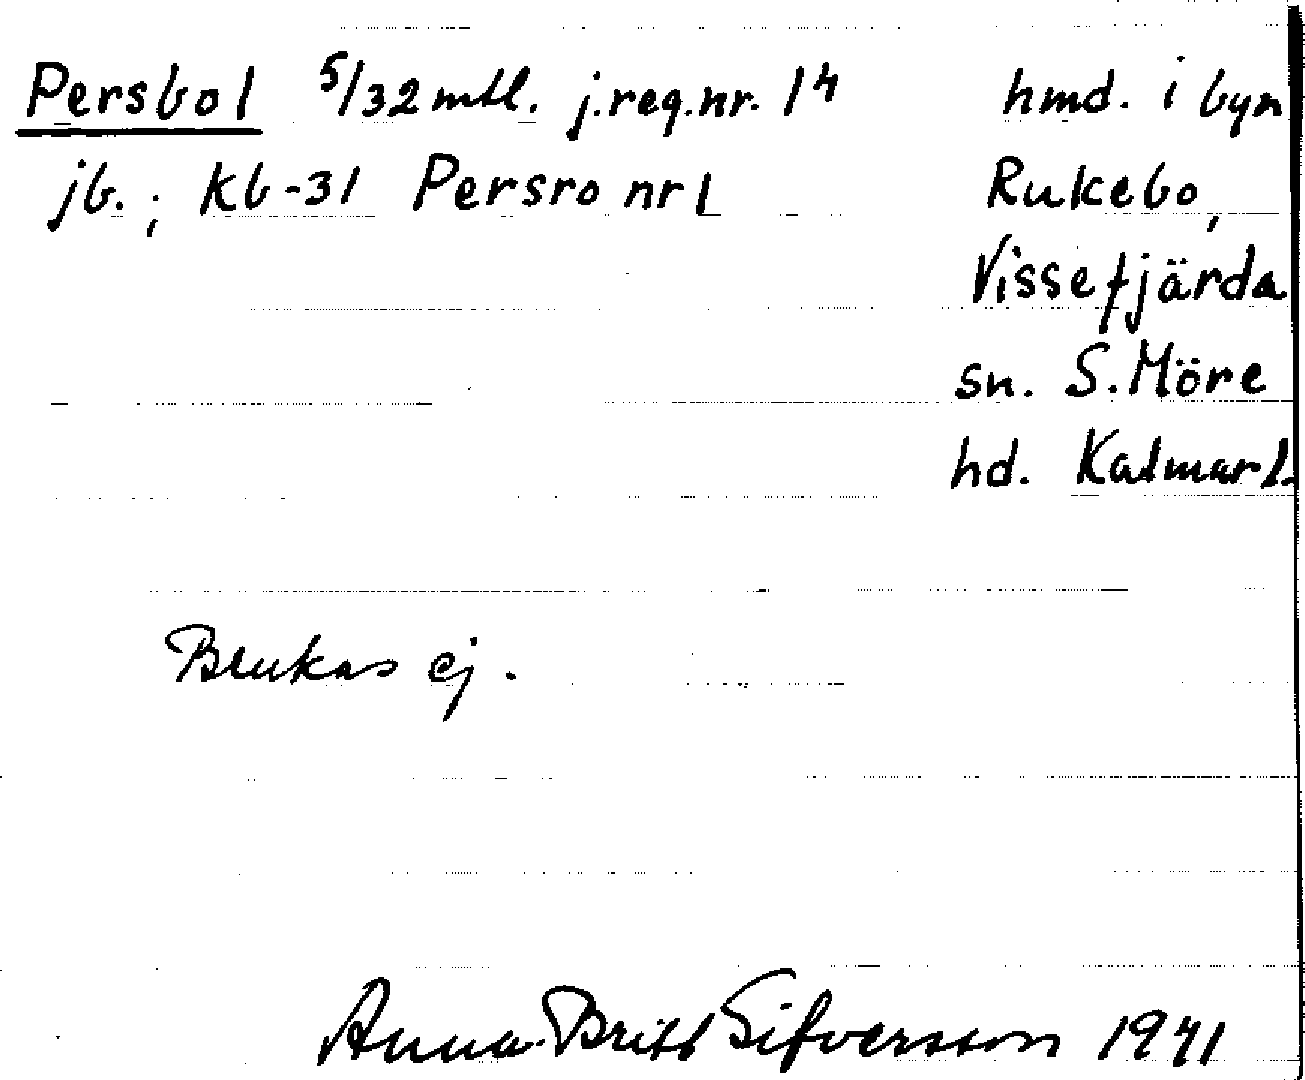 Persbol 5/32 mtl. j.reg.nr. 1⁴ hmd. i byn
jb.; Kb-31 Persro nr 1 Rukebo,
Vissefjärda
sn. S. Möre
hd. Kalmar l.
Brukas ej.
Anna-Britt Sifversson 1941